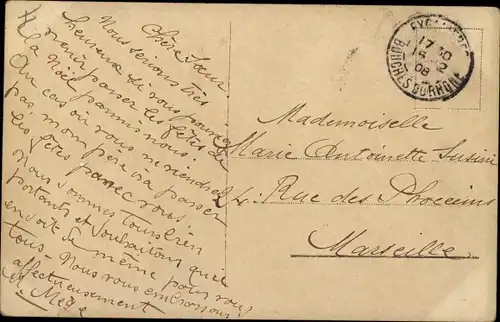 Chère Sœur
Nous serions très
heureux si vous pouviez
venir passer les fêtes de
la Noël parmis nous.
Au cas où vous ne viendrez
pas mon père ira passer
les fêtes avec vous.
Nous sommes tous bien
portants et souhaitons qu'il
en soit de même pour vous
tous. Nous vous embrassons
affectueusement
EY
17
2
08
BOUCHES DU RHONE
Mademoiselle
Marie Antoinette Susini
24 Rue des Phocéens
Marseille